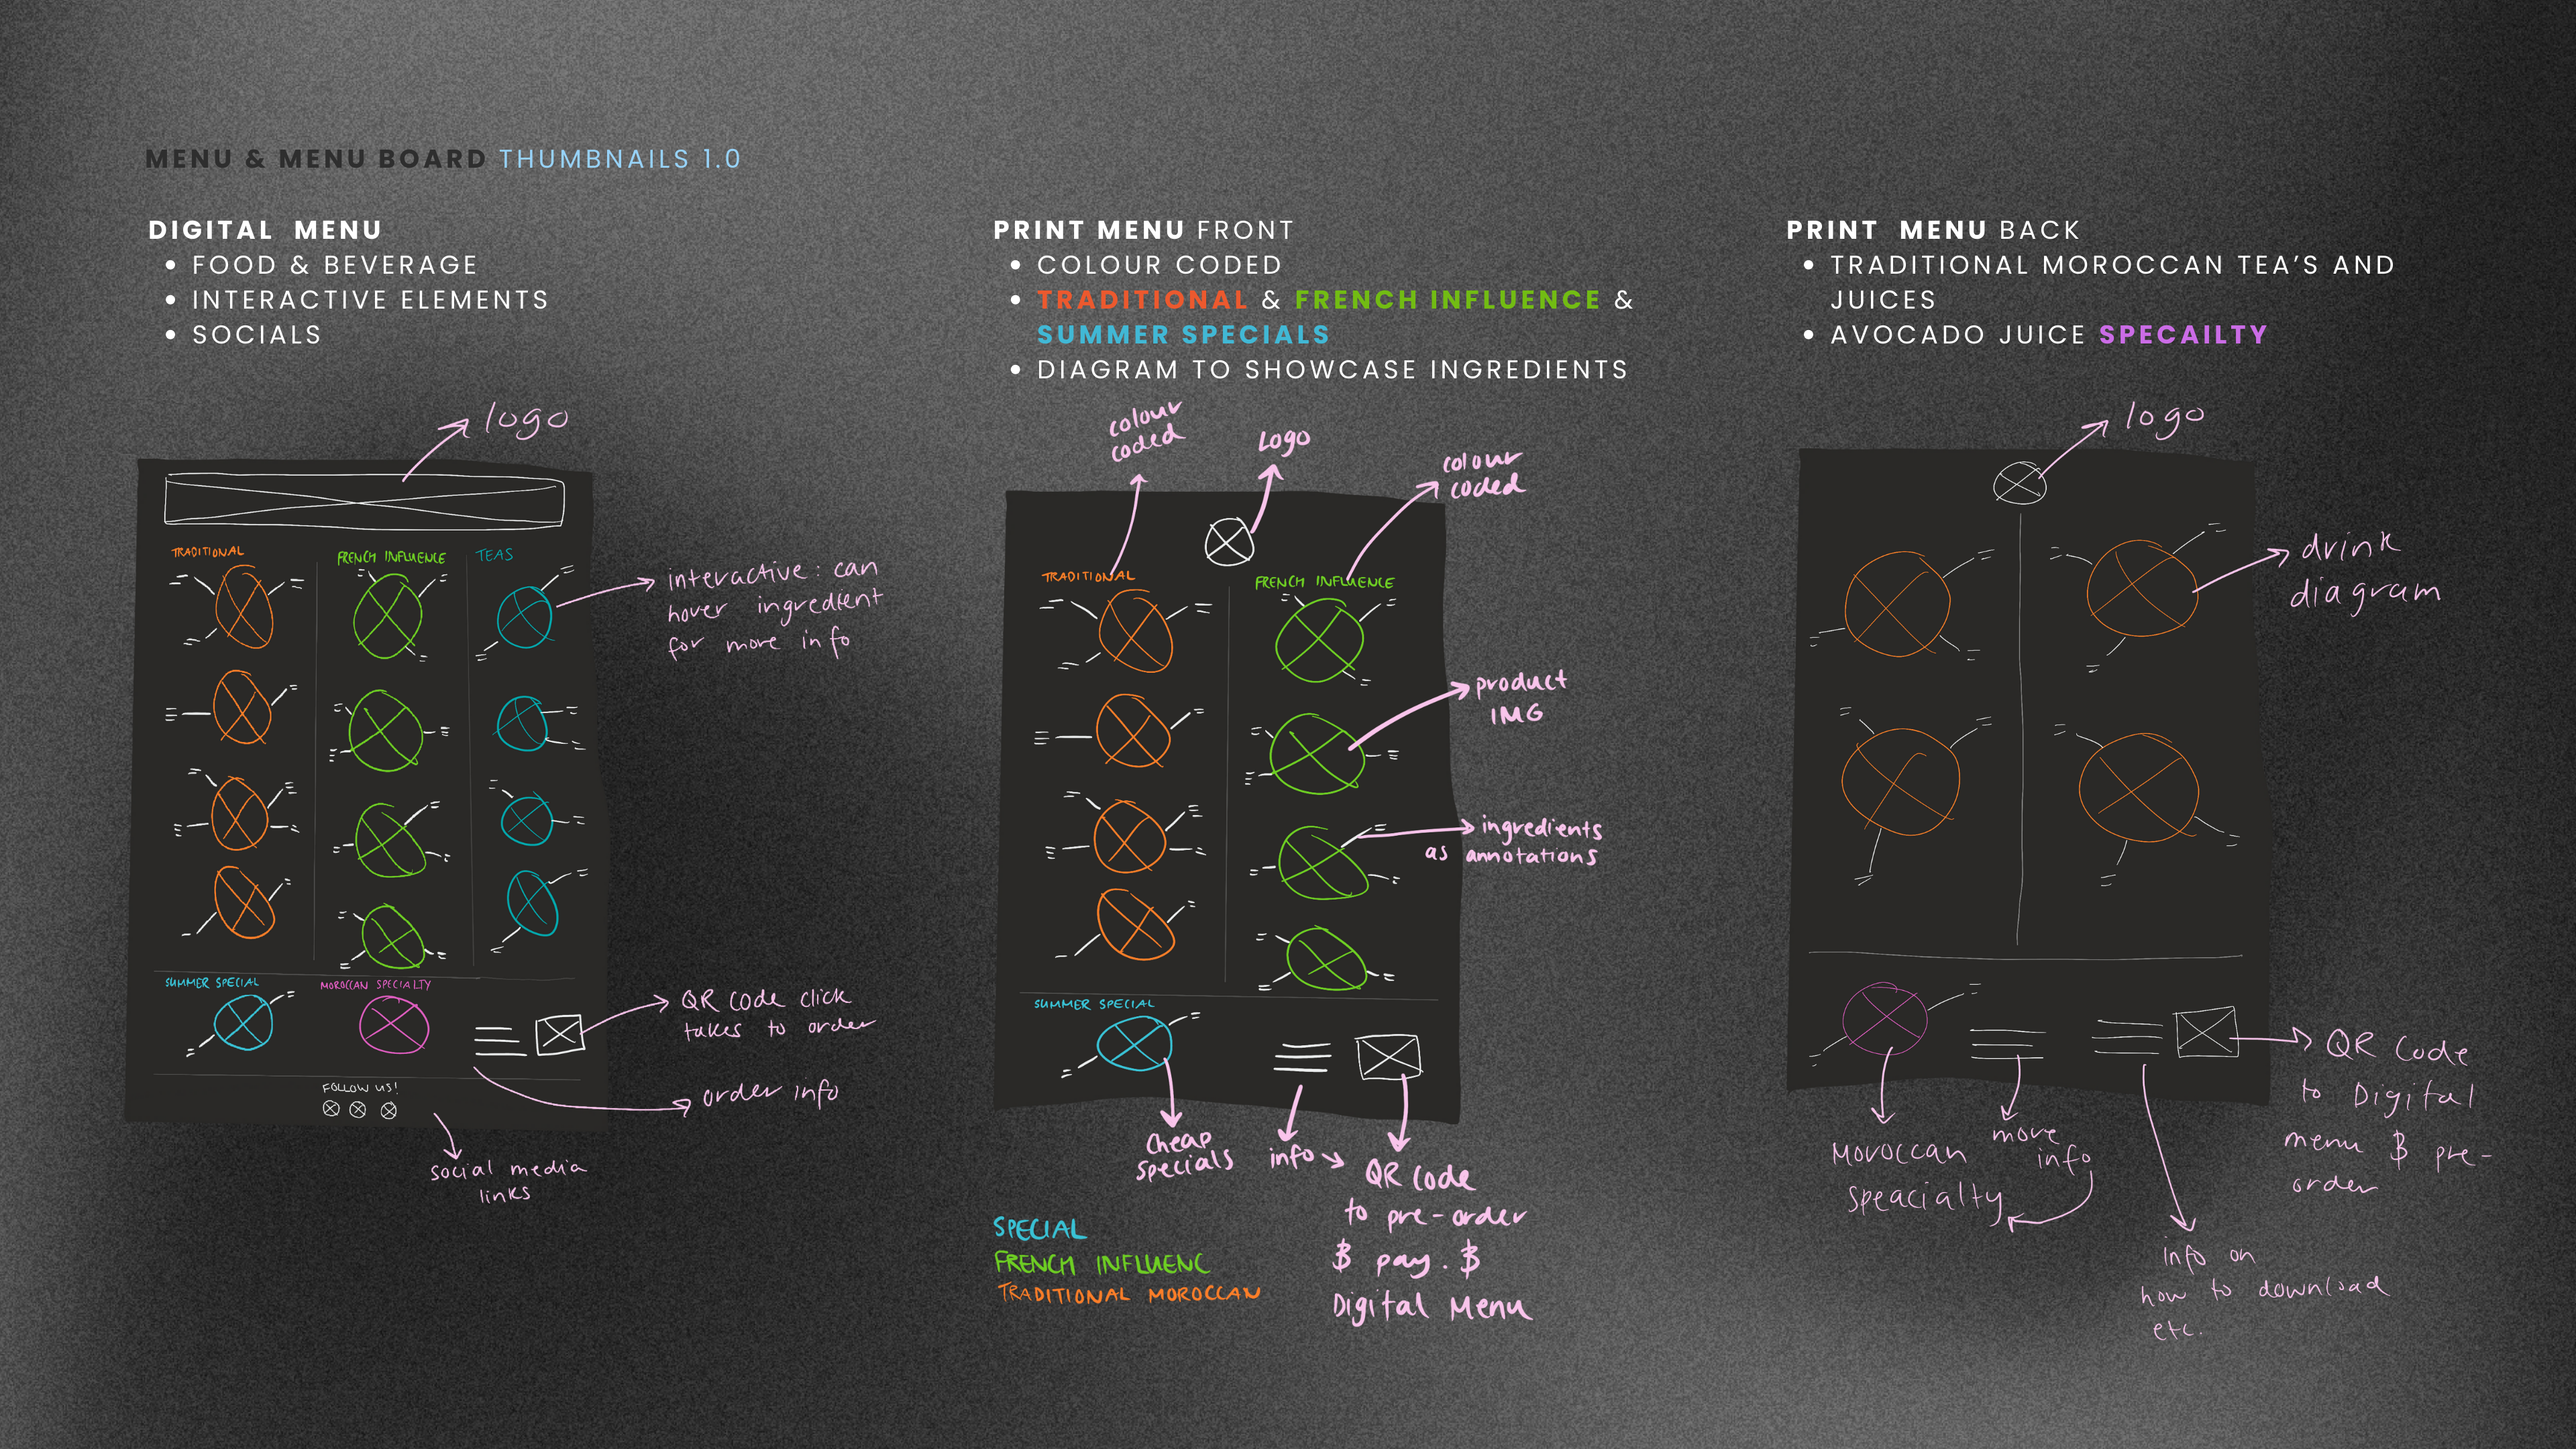 MENU & MENU BOARD THUMBNAILS 1.0
DIGITAL MENU
• FOOD & BEVERAGE
• INTERACTIVE ELEMENTS
• SOCIALS
logo
TRADITIONAL
FRENCH INFLUENCE
TEAS
interactive: can
hover ingredient
for more info
SUMMER SPECIAL
MOROCCAN SPECIALTY
QR code click
takes to order
order info
FOLLOW US!
social media
links
PRINT MENU FRONT
• COLOUR CODED
• TRADITIONAL & FRENCH INFLUENCE &
SUMMER SPECIALS
• DIAGRAM TO SHOWCASE INGREDIENTS
colour
coded
Logo
colour
coded
TRADITIONAL
FRENCH INFLUENCE
product
IMG
ingredients
as annotations
SUMMER SPECIAL
Cheap
specials
info
QR Code
to pre-order
$ pay. $
Digital Menu
SPECIAL
FRENCH INFLUENC
TRADITIONAL MOROCCAN
PRINT MENU BACK
• TRADITIONAL MOROCCAN TEA'S AND
JUICES
• AVOCADO JUICE SPECAILTY
logo
drink
diagram
Moroccan
speacialty
more
info
QR Code
to Digital
menu $ pre-
order
info on
how to download
etc.